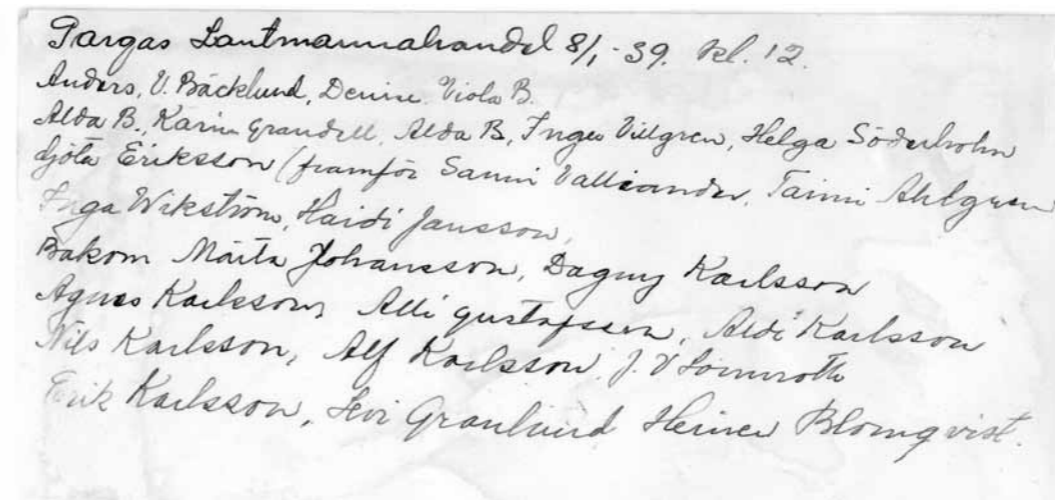 Pargas Lantmannahandel 8/1 -39. kl. 12.
Anders, V. Bäcklund, Viola B.
Alda B., Karin Grandell, Alda B, Inga Villgren, Helga Söderholm
Göta Eriksson (framför Sanni Valliander, Taimi Ahlgren
Inga Wikström, Haidi Jansson,
Bakom Märta Johansson, Dagny Karlsson
Agnes Karlsson, Alli Gustafsson, Aldi Karlsson
Nils Karlsson, Alf Karlsson, J. V
Erik Karlsson, Levi Granlund Heimer Blomqvist.